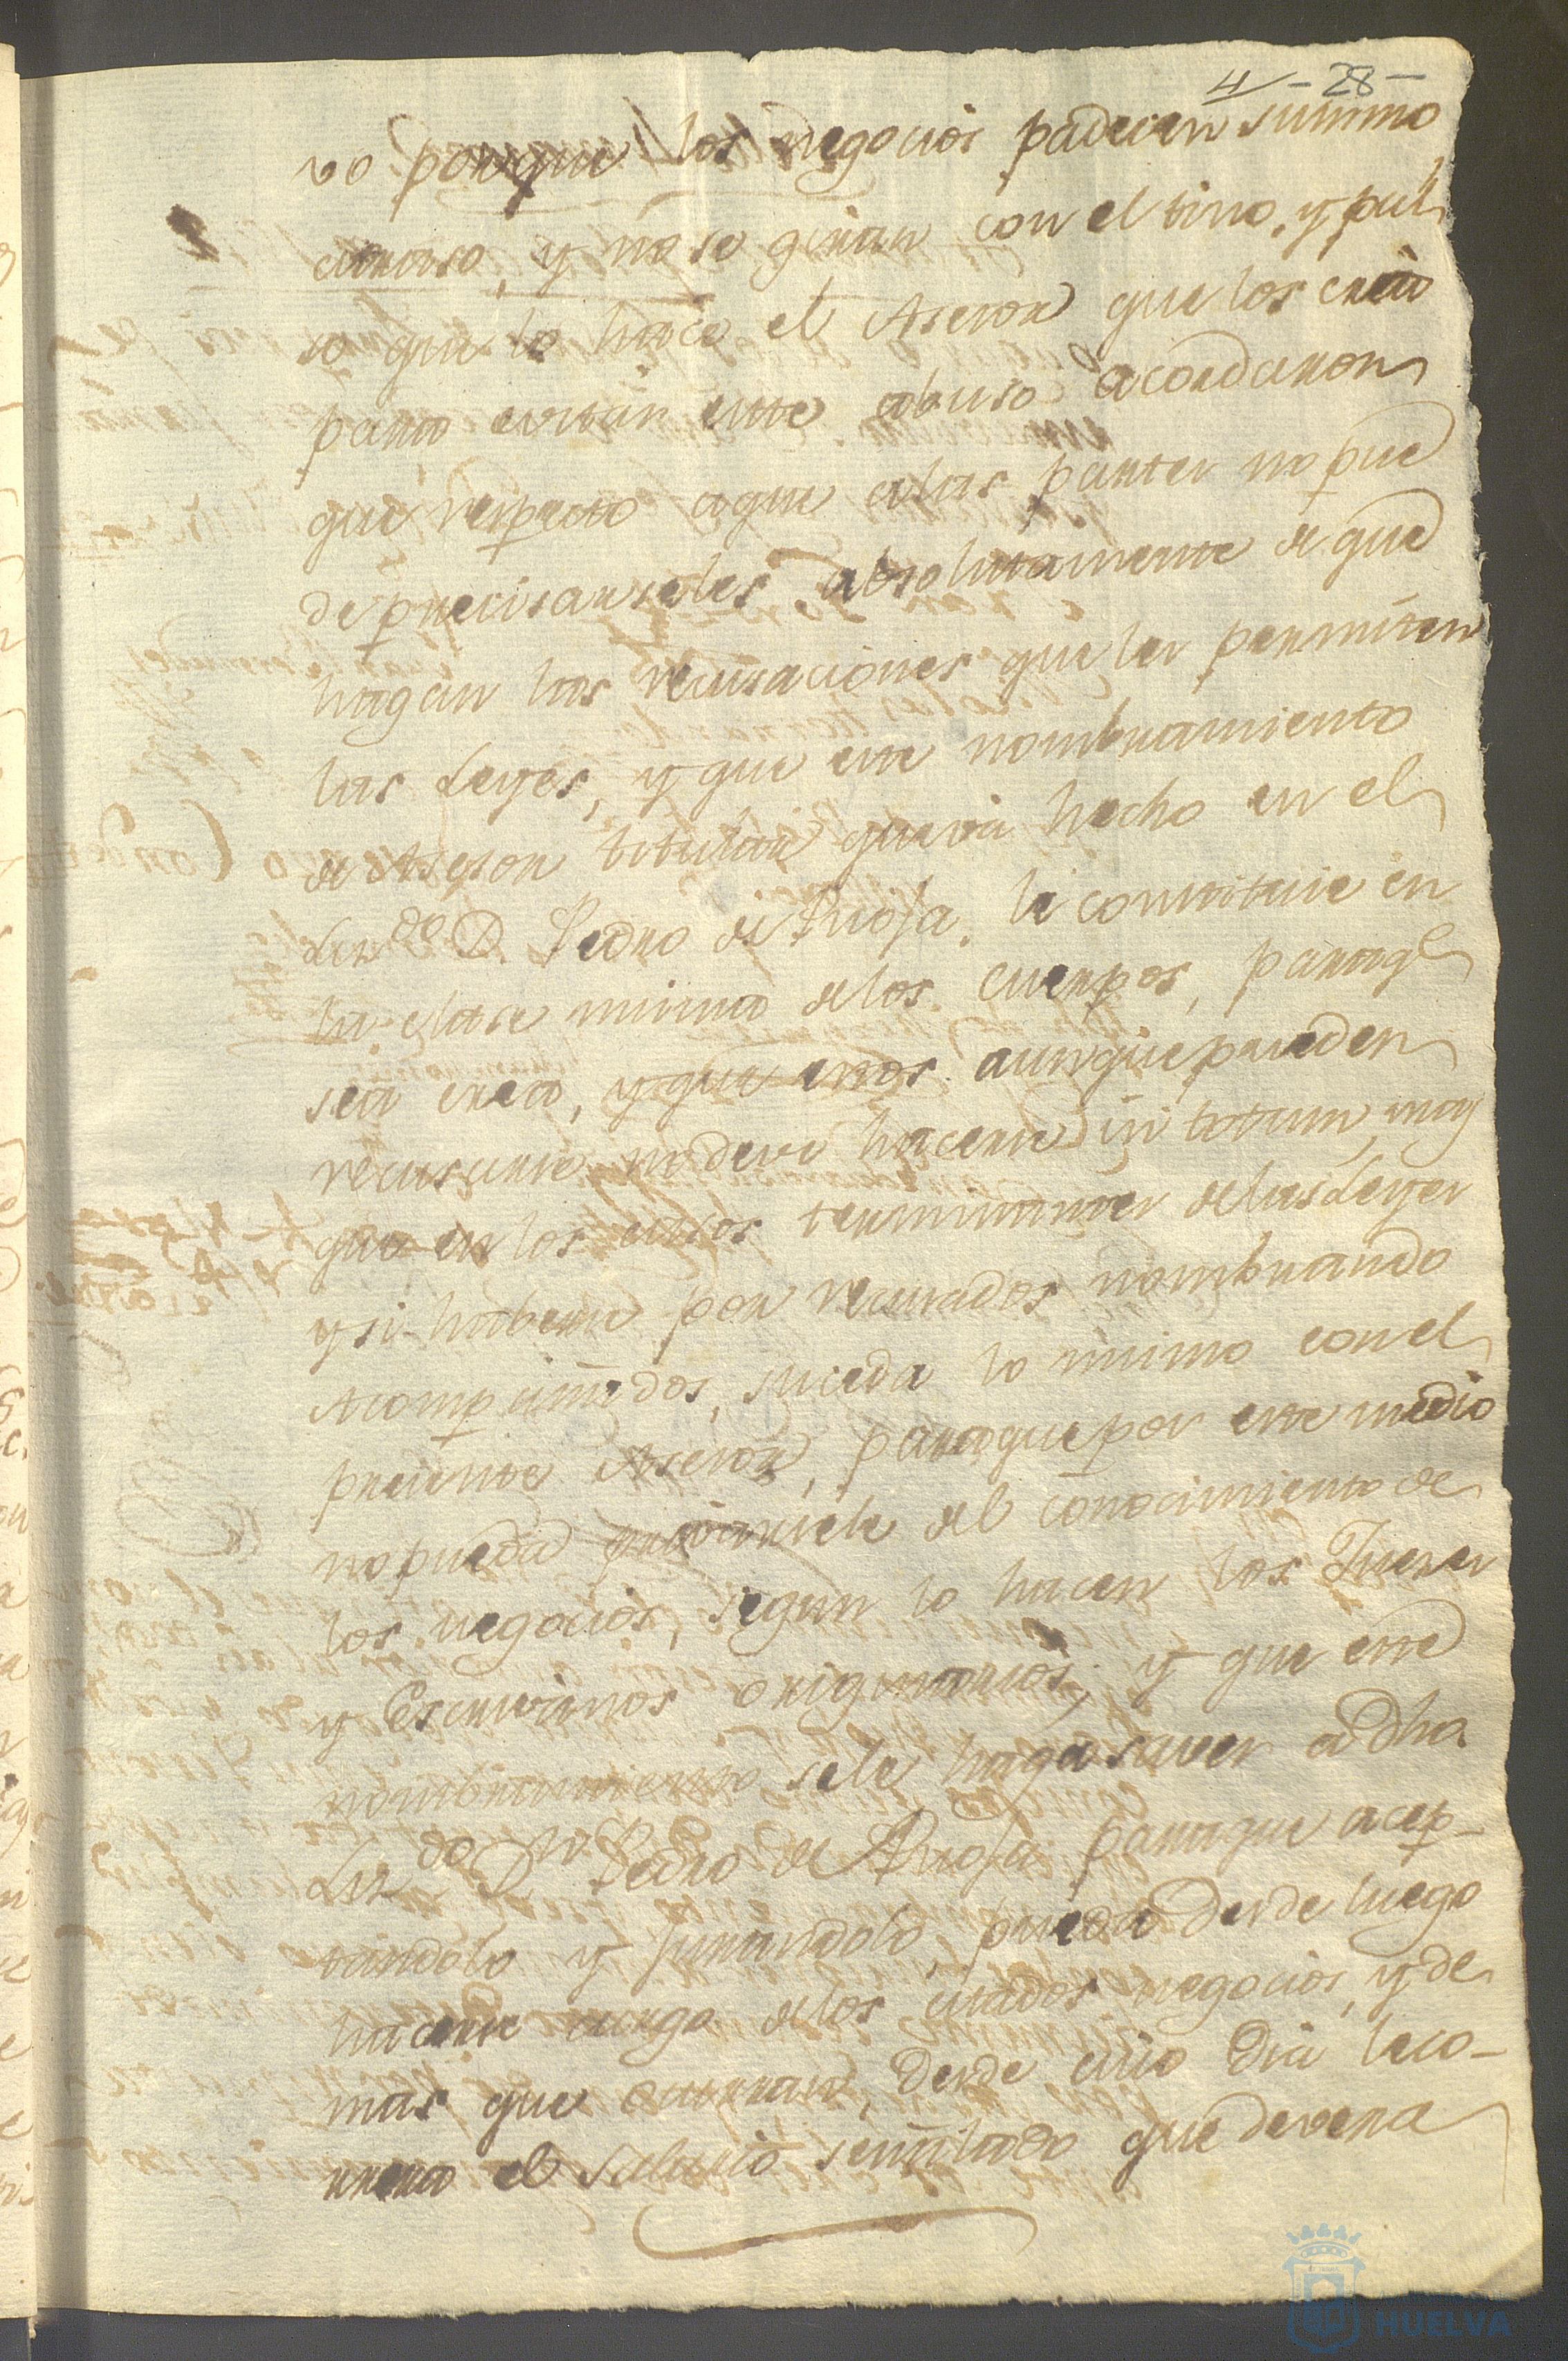 4 - 28 -
vo porque los negocios padecen summo
atraso, y no se giran con el tino, y pul
so que lo hace el Asesor que los creio
para evitar este abuso acordaron
que respecto aque alas partes no pue
de precisarseles absolutamente de que
hagan las recusaciones que les permiten
las Leyes, y que este nombramiento
de Asesor titular que va hecho en el
Liz.do D. Pedro de Rioja, le constituie en
la clase misma delos cuerpos, paraq.e
sea creto, y que estos aunque pueden
recusarse no deve hacerse in totum, mas
que en los casos terminantes delas Leyes
y si haberse por recusados nombrando
Acompañados, suceda lo mismo con el
presente Asesor, paraque por este medio
no pueda privarsele del conocimiento de
los negocios, segun lo hacen los Jueces
y Escrivanos originarios; y que este
nombramiento sele haga saver a dho
Liz.do D.n Pedro de Rioja paraque acep-
tandolo y jurandolo, pueda desde luego
hacerse cargo delos citados negocios, y de
mas que ocurran, desde cuio dia leco-
rrera el salario señalado que devera
HUELVA